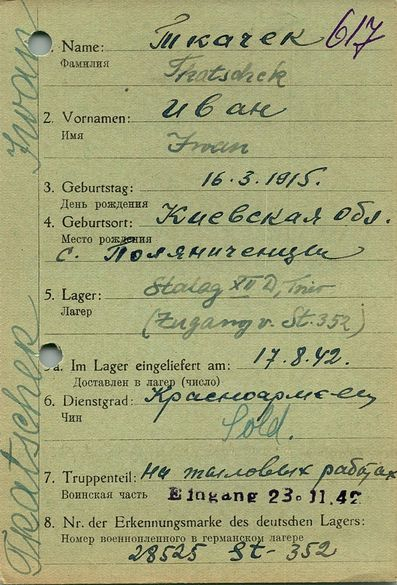 617
1. Name: Ткачек
Фамилия
Tkatschek
2. Vornamen: Иван
Имя
Iwan
3. Geburtstag: 16.3.1915.
День рождения
4. Geburtsort: Киевская обл.
Место рождения
с. Поляниченцы
5. Lager: Stalag XII D, Trier
Лагер
(Zugang v. St. 352)
5a. Im Lager eingeliefert am: 17.8.42.
Доставлен в лагер (число)
6. Dienstgrad: Красноармеец
Чин
Sold.
7. Truppenteil: на тыловых работах
Воинская часть Eingang 23. 11. 42
8. Nr. der Erkennungsmarke des deutschen Lagers:
Номер военнопленного в германском лагере
28525 St-352
Tkatschek Iwan